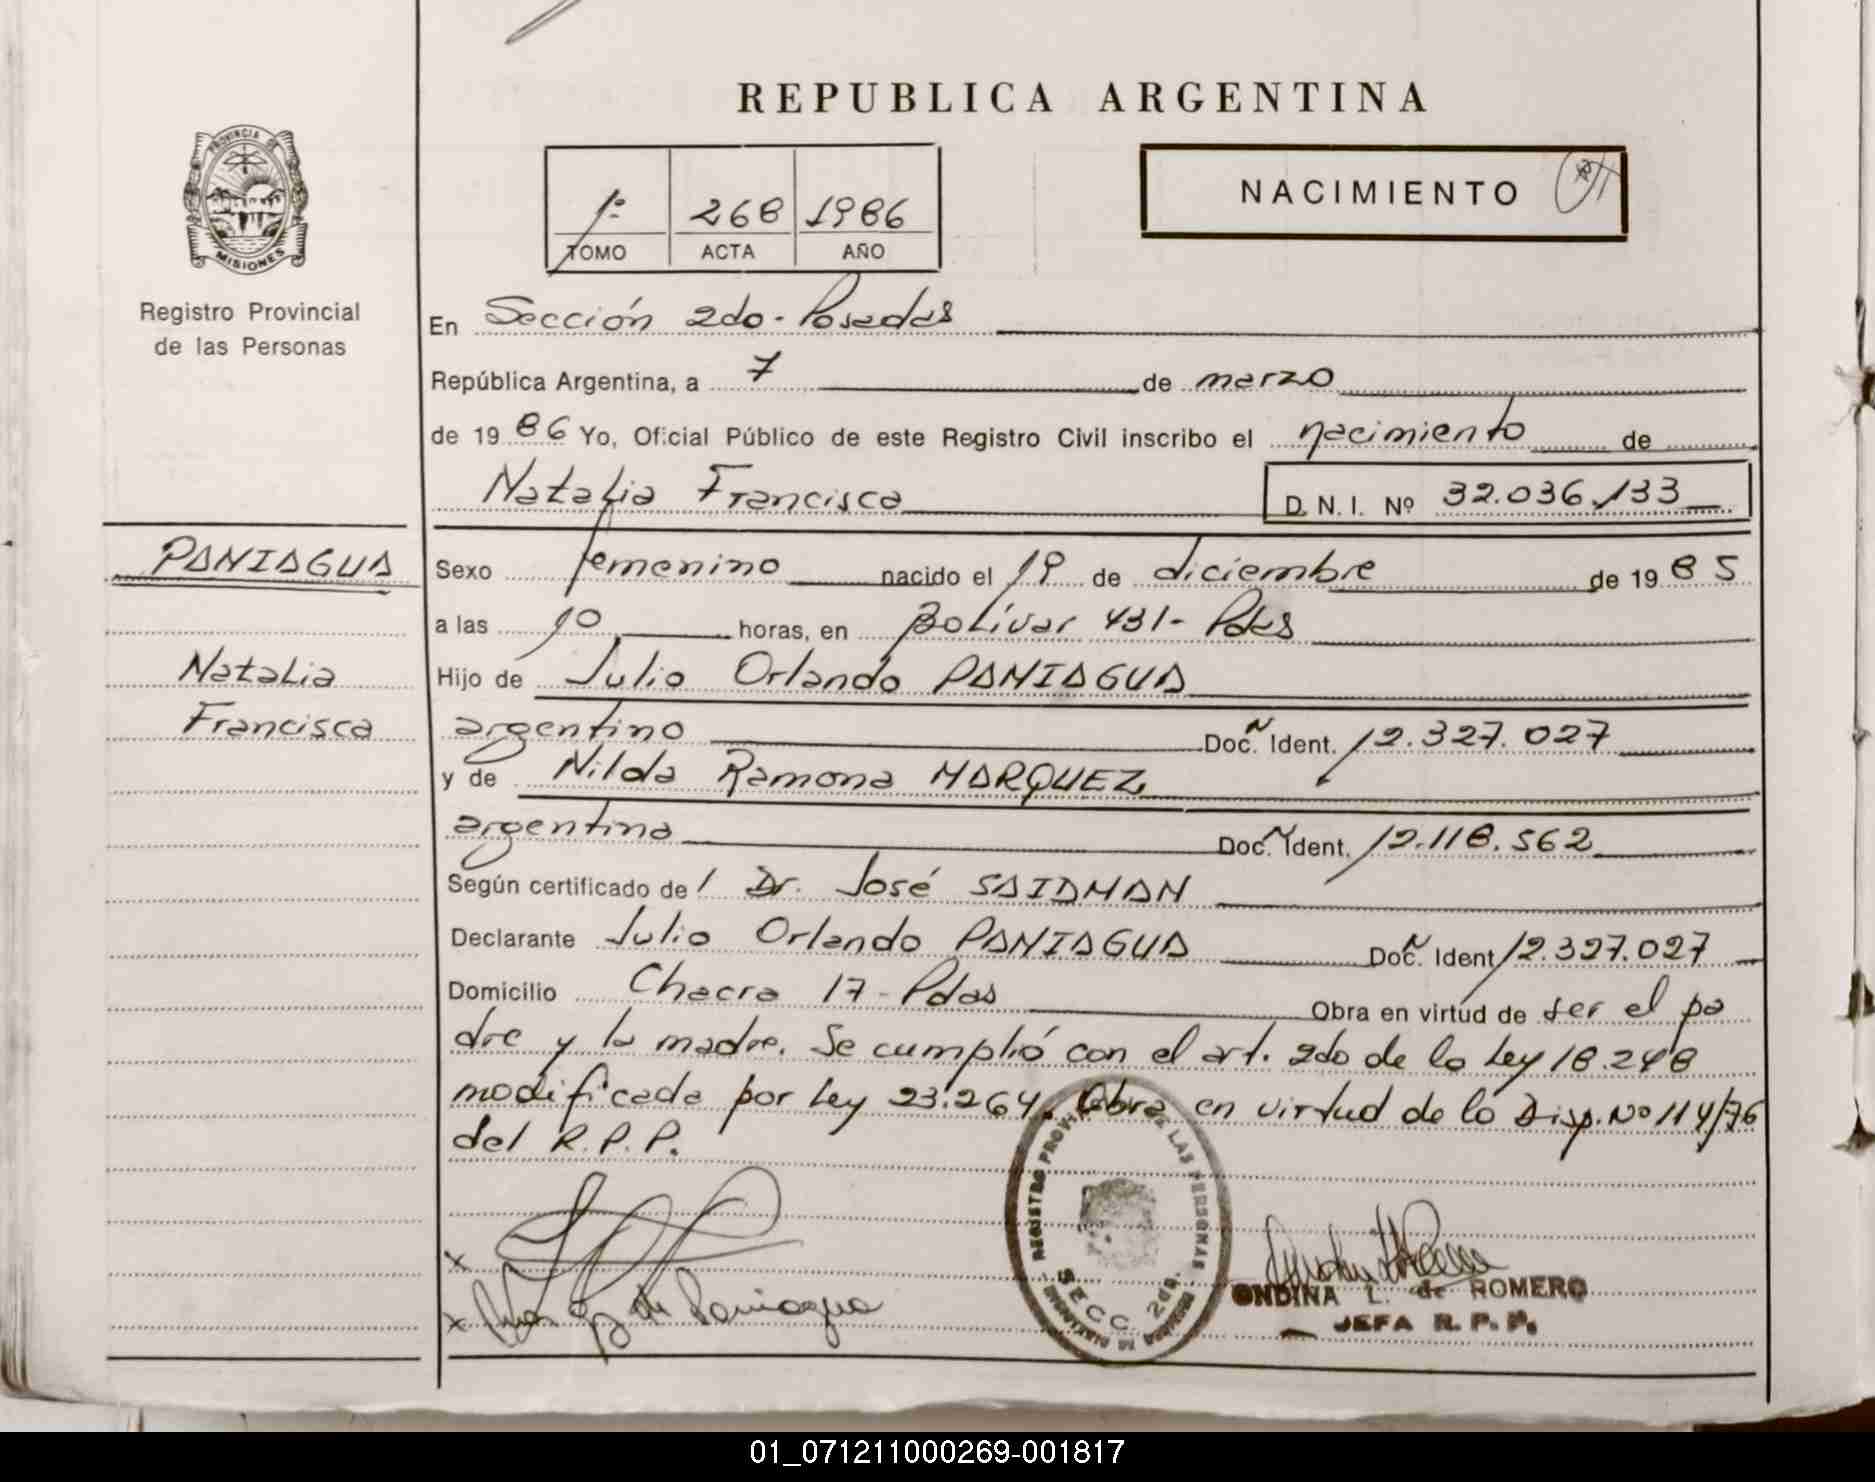 REPUBLICA ARGENTINA
PROVINCIA DE
MISIONES
Registro Provincial
de las Personas
1º 268 1986
TOMO ACTA AÑO
NACIMIENTO
En Sección 2do - Posadas
República Argentina, a 7 de marzo
de 1986 Yo, Oficial Público de este Registro Civil inscribo el nacimiento de
Natalia Francisca D. N. I. Nº 32.036.133
PANIAGUA
Natalia
Francisca
Sexo femenino nacido el 19 de diciembre de 1985
a las 10 horas, en Bolívar 431 - Pdas
Hijo de Julio Orlando PANIAGUA
argentino Doc. N Ident. 12.327.027
y de Nilda Ramona MARQUEZ
argentina Doc. N Ident. 12.118.562
Según certificado de l Dr. José SAIDMAN
Declarante Julio Orlando PANIAGUA Doc. N Ident 12.327.027
Domicilio Chacra 17 - Pdas Obra en virtud de ser el pa
dre y la madre. Se cumplió con el art. 2do de la Ley 18.248
modificada por Ley 23.264. Obra en virtud de lo Disp. Nº 114/76
del R.P.P.
REGISTRO PROVINCIAL DE LAS PERSONAS
SECC. 2da.
x
x de Paniagua
ONDINA L. de ROMERO
JEFA R. P. P.
01_071211000269-001817